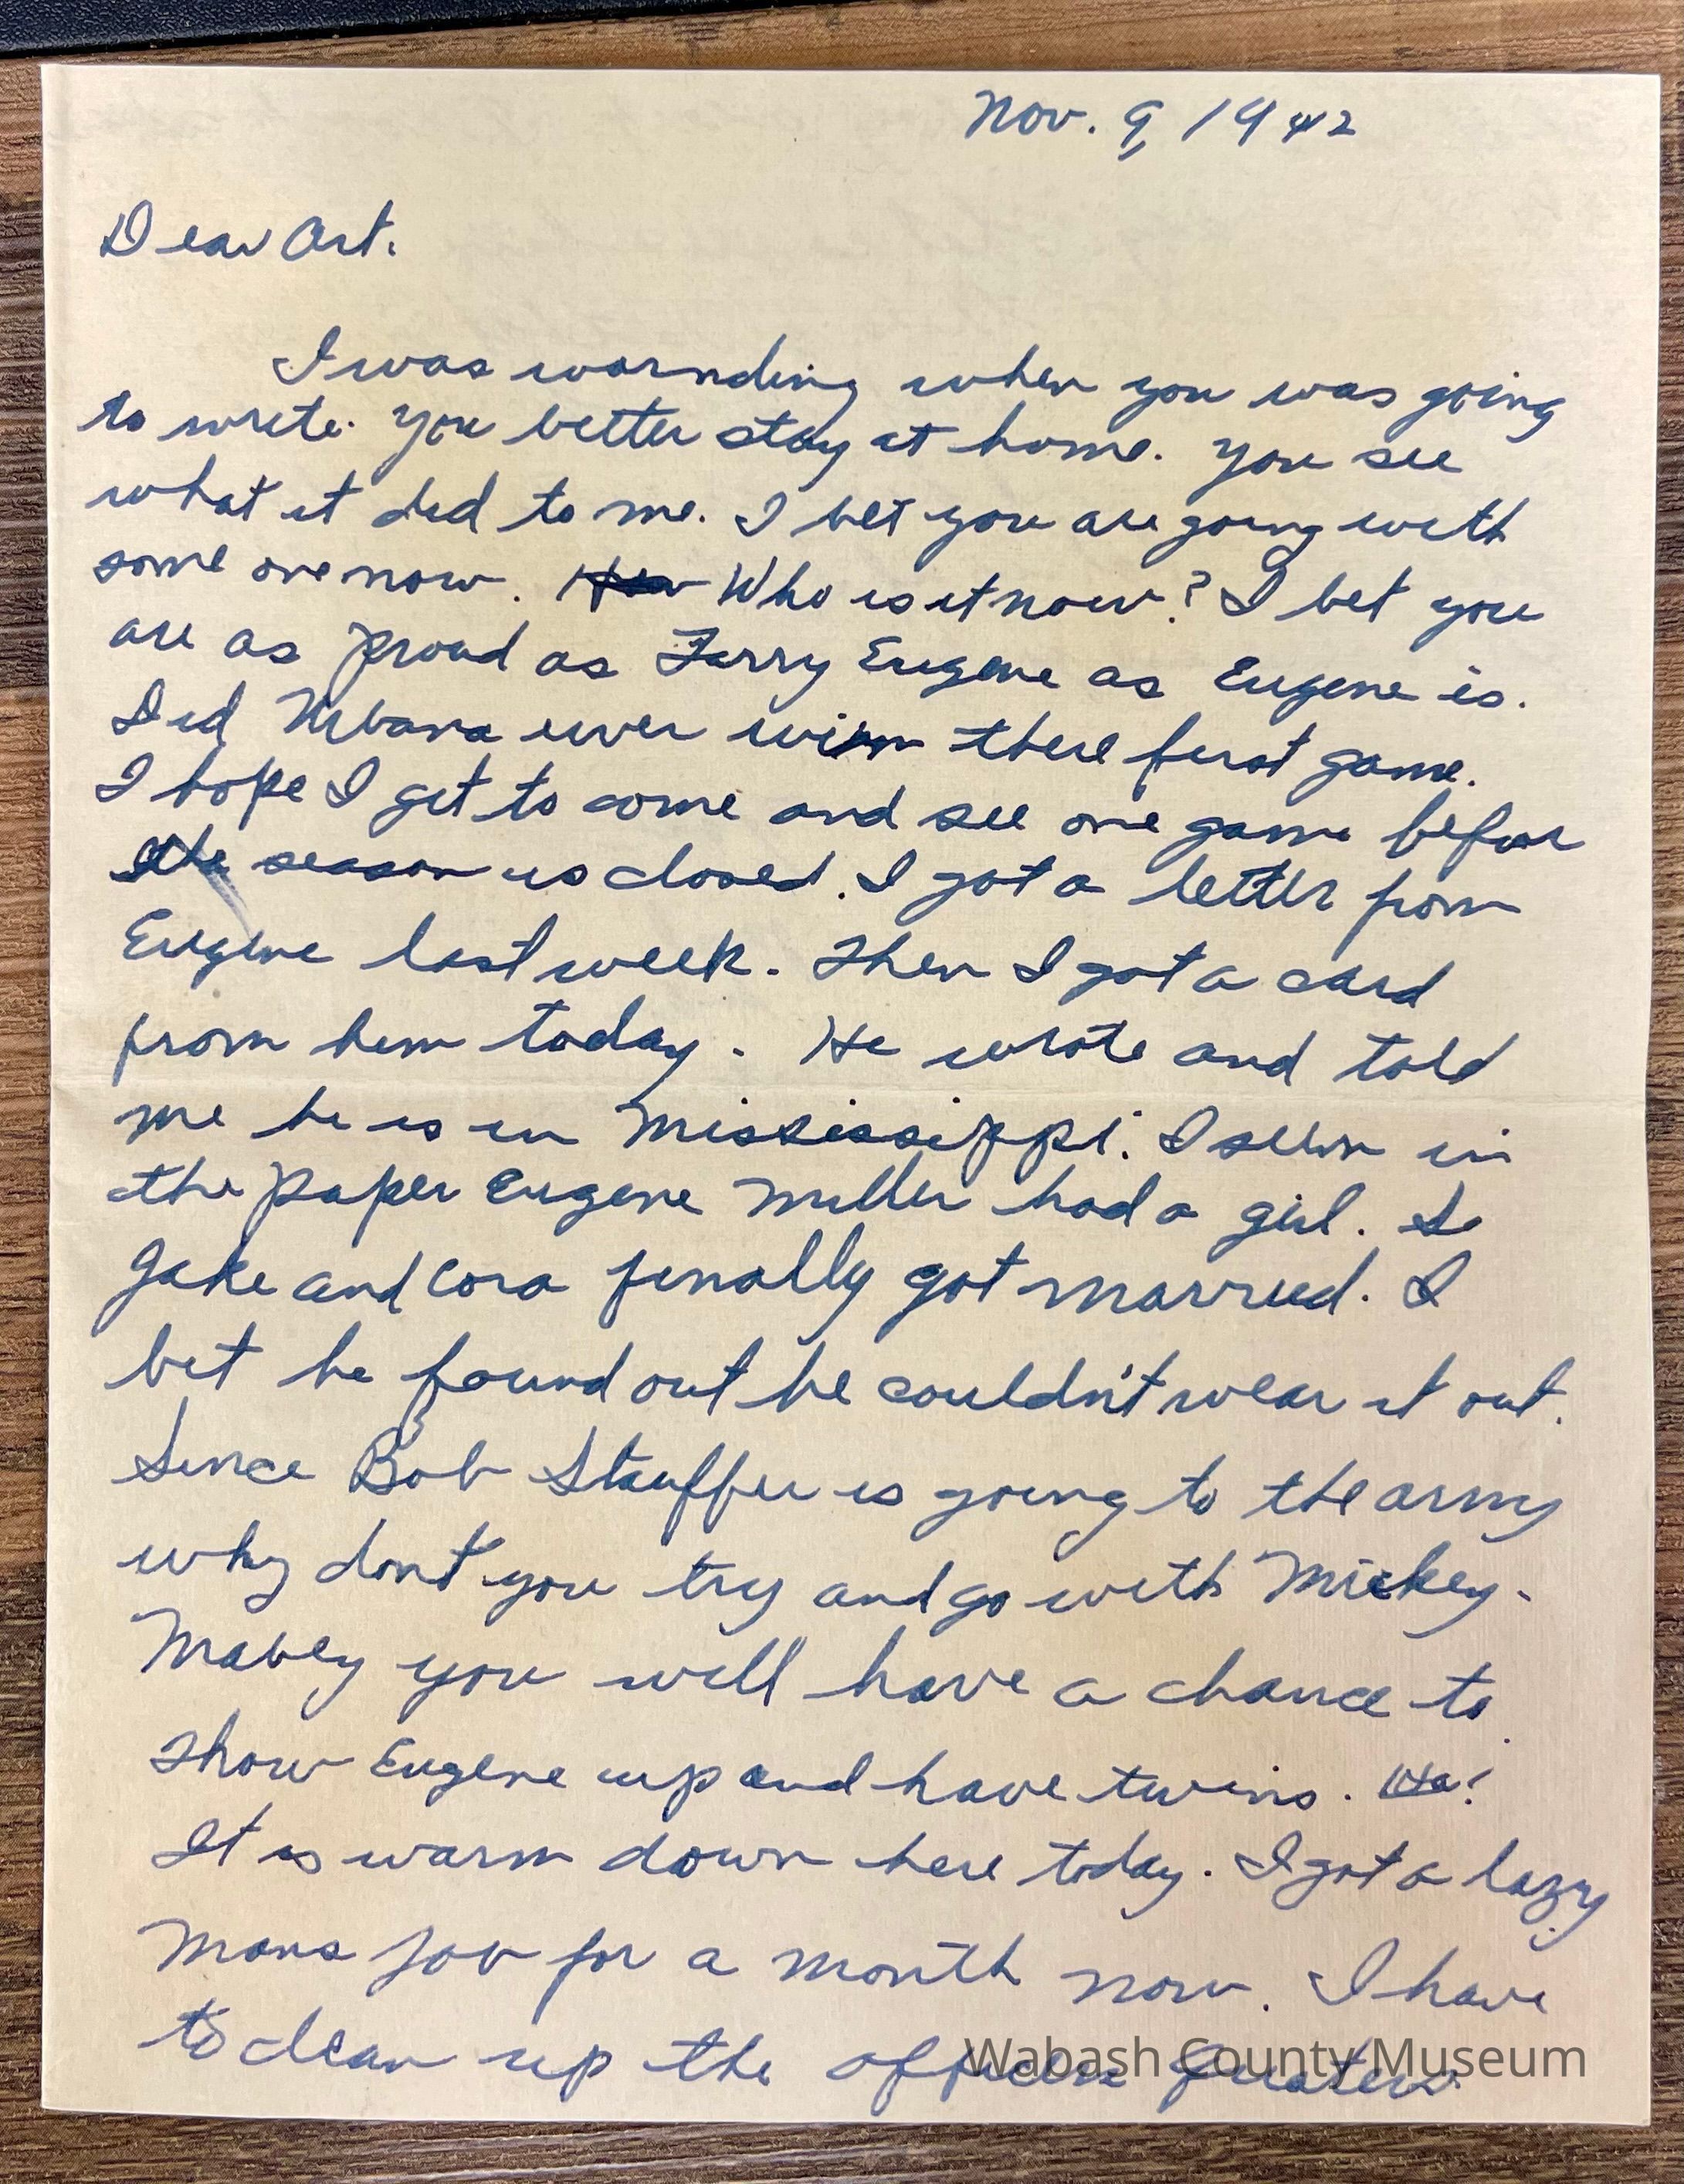 Nov. 9, 1942
Dear Art.
I was warnding when you was going
to write. You better stay at home. You see
what it did to me. I bet you are going with
some one now. How Who is it now? I bet you
are as proud as Larry Eugene as Eugene is.
Did Urbana ever win there first game.
I hope I get to come and see one game befor
the season is closed. I got a letter from
Eugene last week. Then I got a card
from him today. He wrote and told
me he is in Mississippi. I seen in
the paper Eugene Miller had a girl. So
Jake and Cora finally got married. I
bet he found out he couldn't wear it out.
Since Bob Stauffer is going to the army
why dont you try and go with Mickey.
Mabey you will have a chance to
show Eugene up and have twins. Ha!
It is warm down here today. I got a lazy
mans job for a month now. I have
to clean up the officers
Wabash County Museum